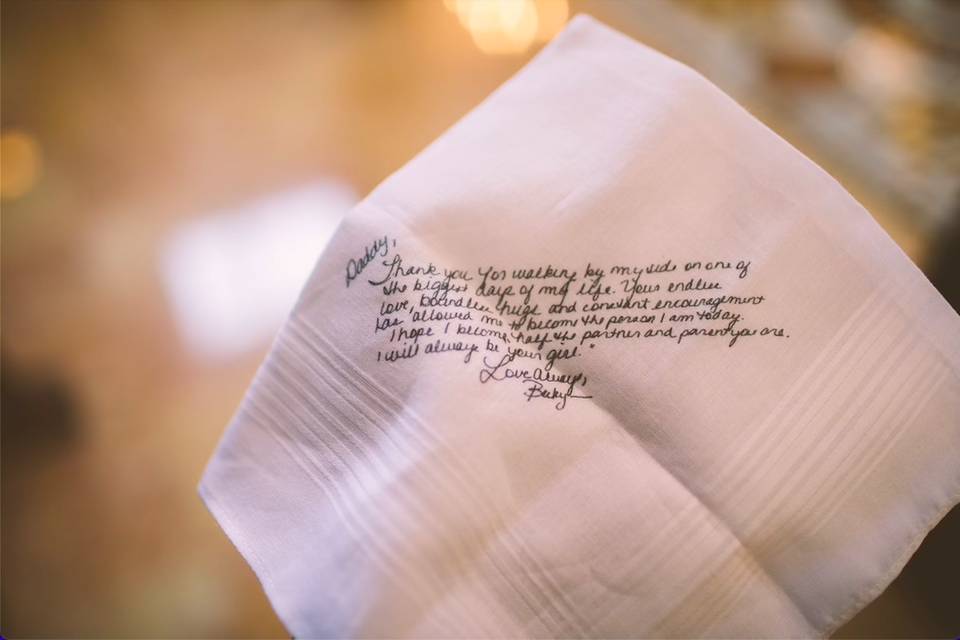 Daddy,
Thank you for walking by my side on one of
the biggest days of my life. Your endless
love, boundless hugs and constant encouragement
has allowed me to become the person I am today.
I hope I become half the partner and parent you are.
I will always be your girl."
Love Always,
Becky